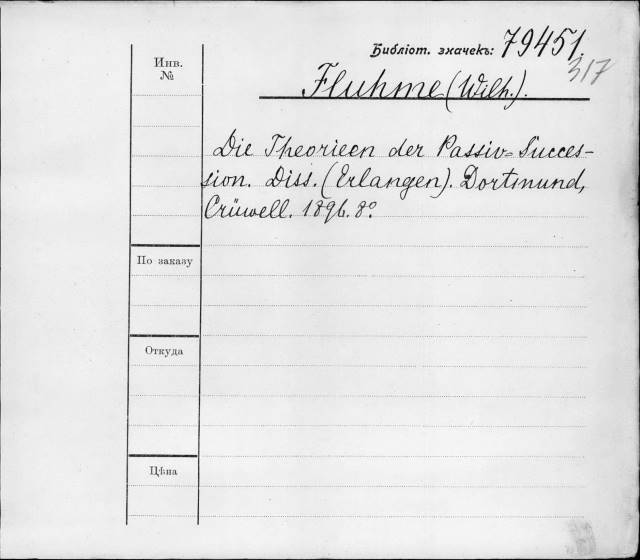 Библіот. значекъ: 79451.
317
Инв.
№
Fluhme (Wilh.).
Die Theorieen der Passiv=Succes-
sion. Diss. (Erlangen). Dortmund,
Crüwell. 1896. 8º.
По заказу
Откуда
Цѣна